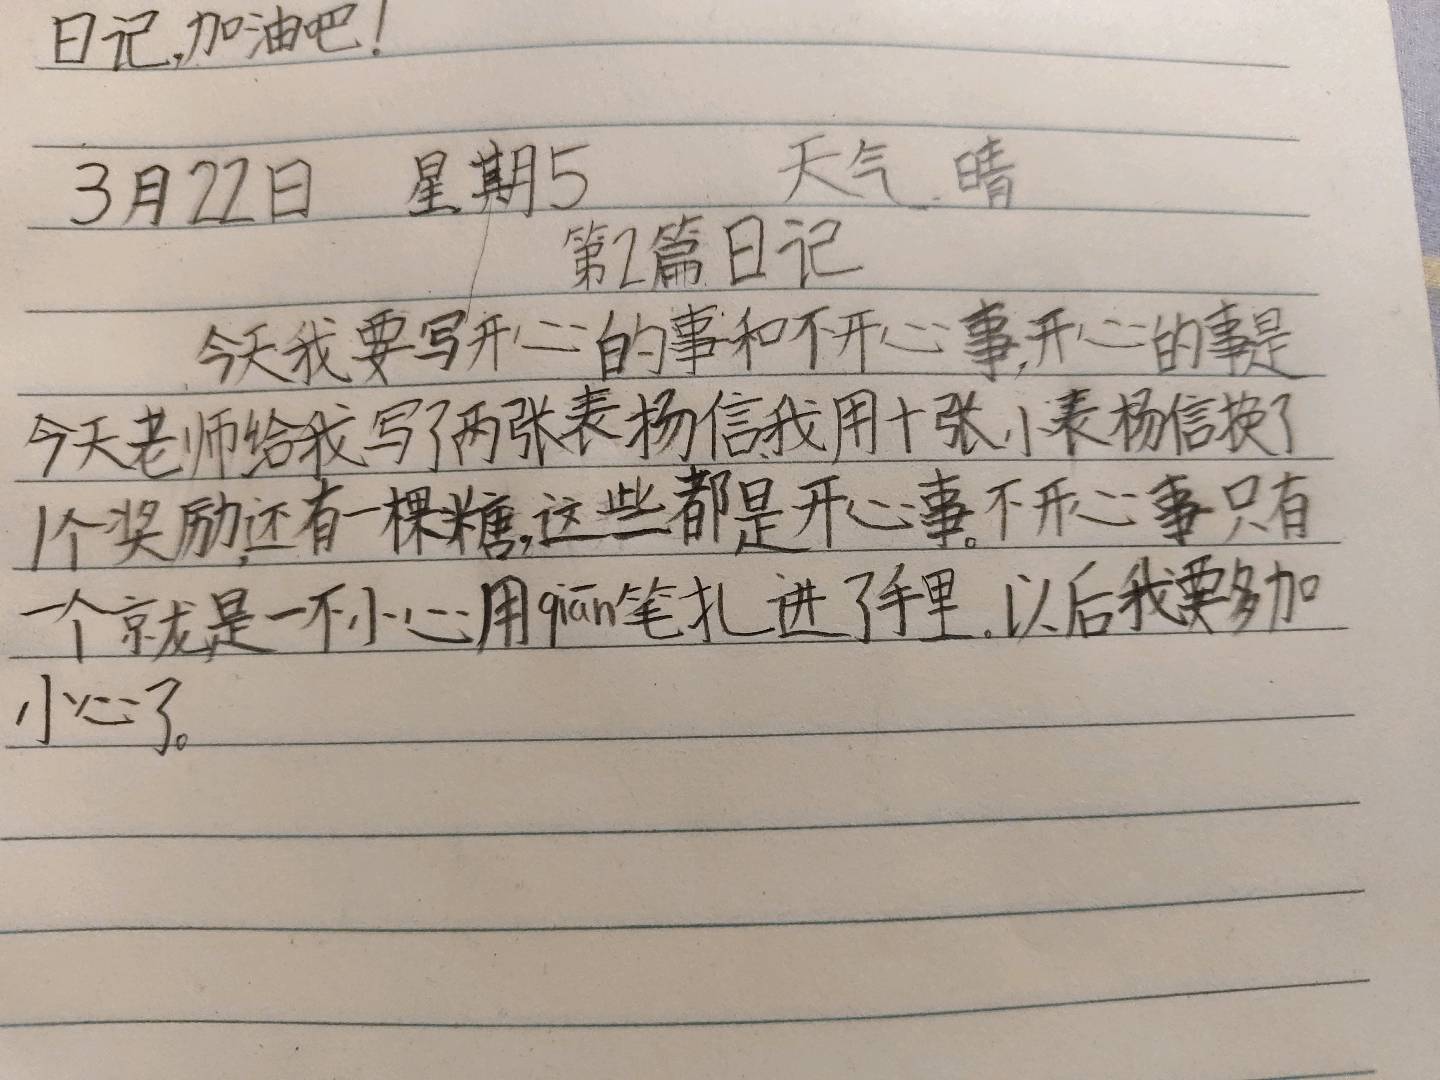 日记,加油吧!
3月22日 星期5 天气晴
第2篇日记
今天我要写开心的事和不开心事,开心的事是
今天老师给我写了两张表杨信,我用十张小表杨信换了
1个奖励,还有一棵糖,这些都是开心事。不开心事只有
一个京尤是一不小心用qiān笔扎进了手里.以后我要多加
小心了。